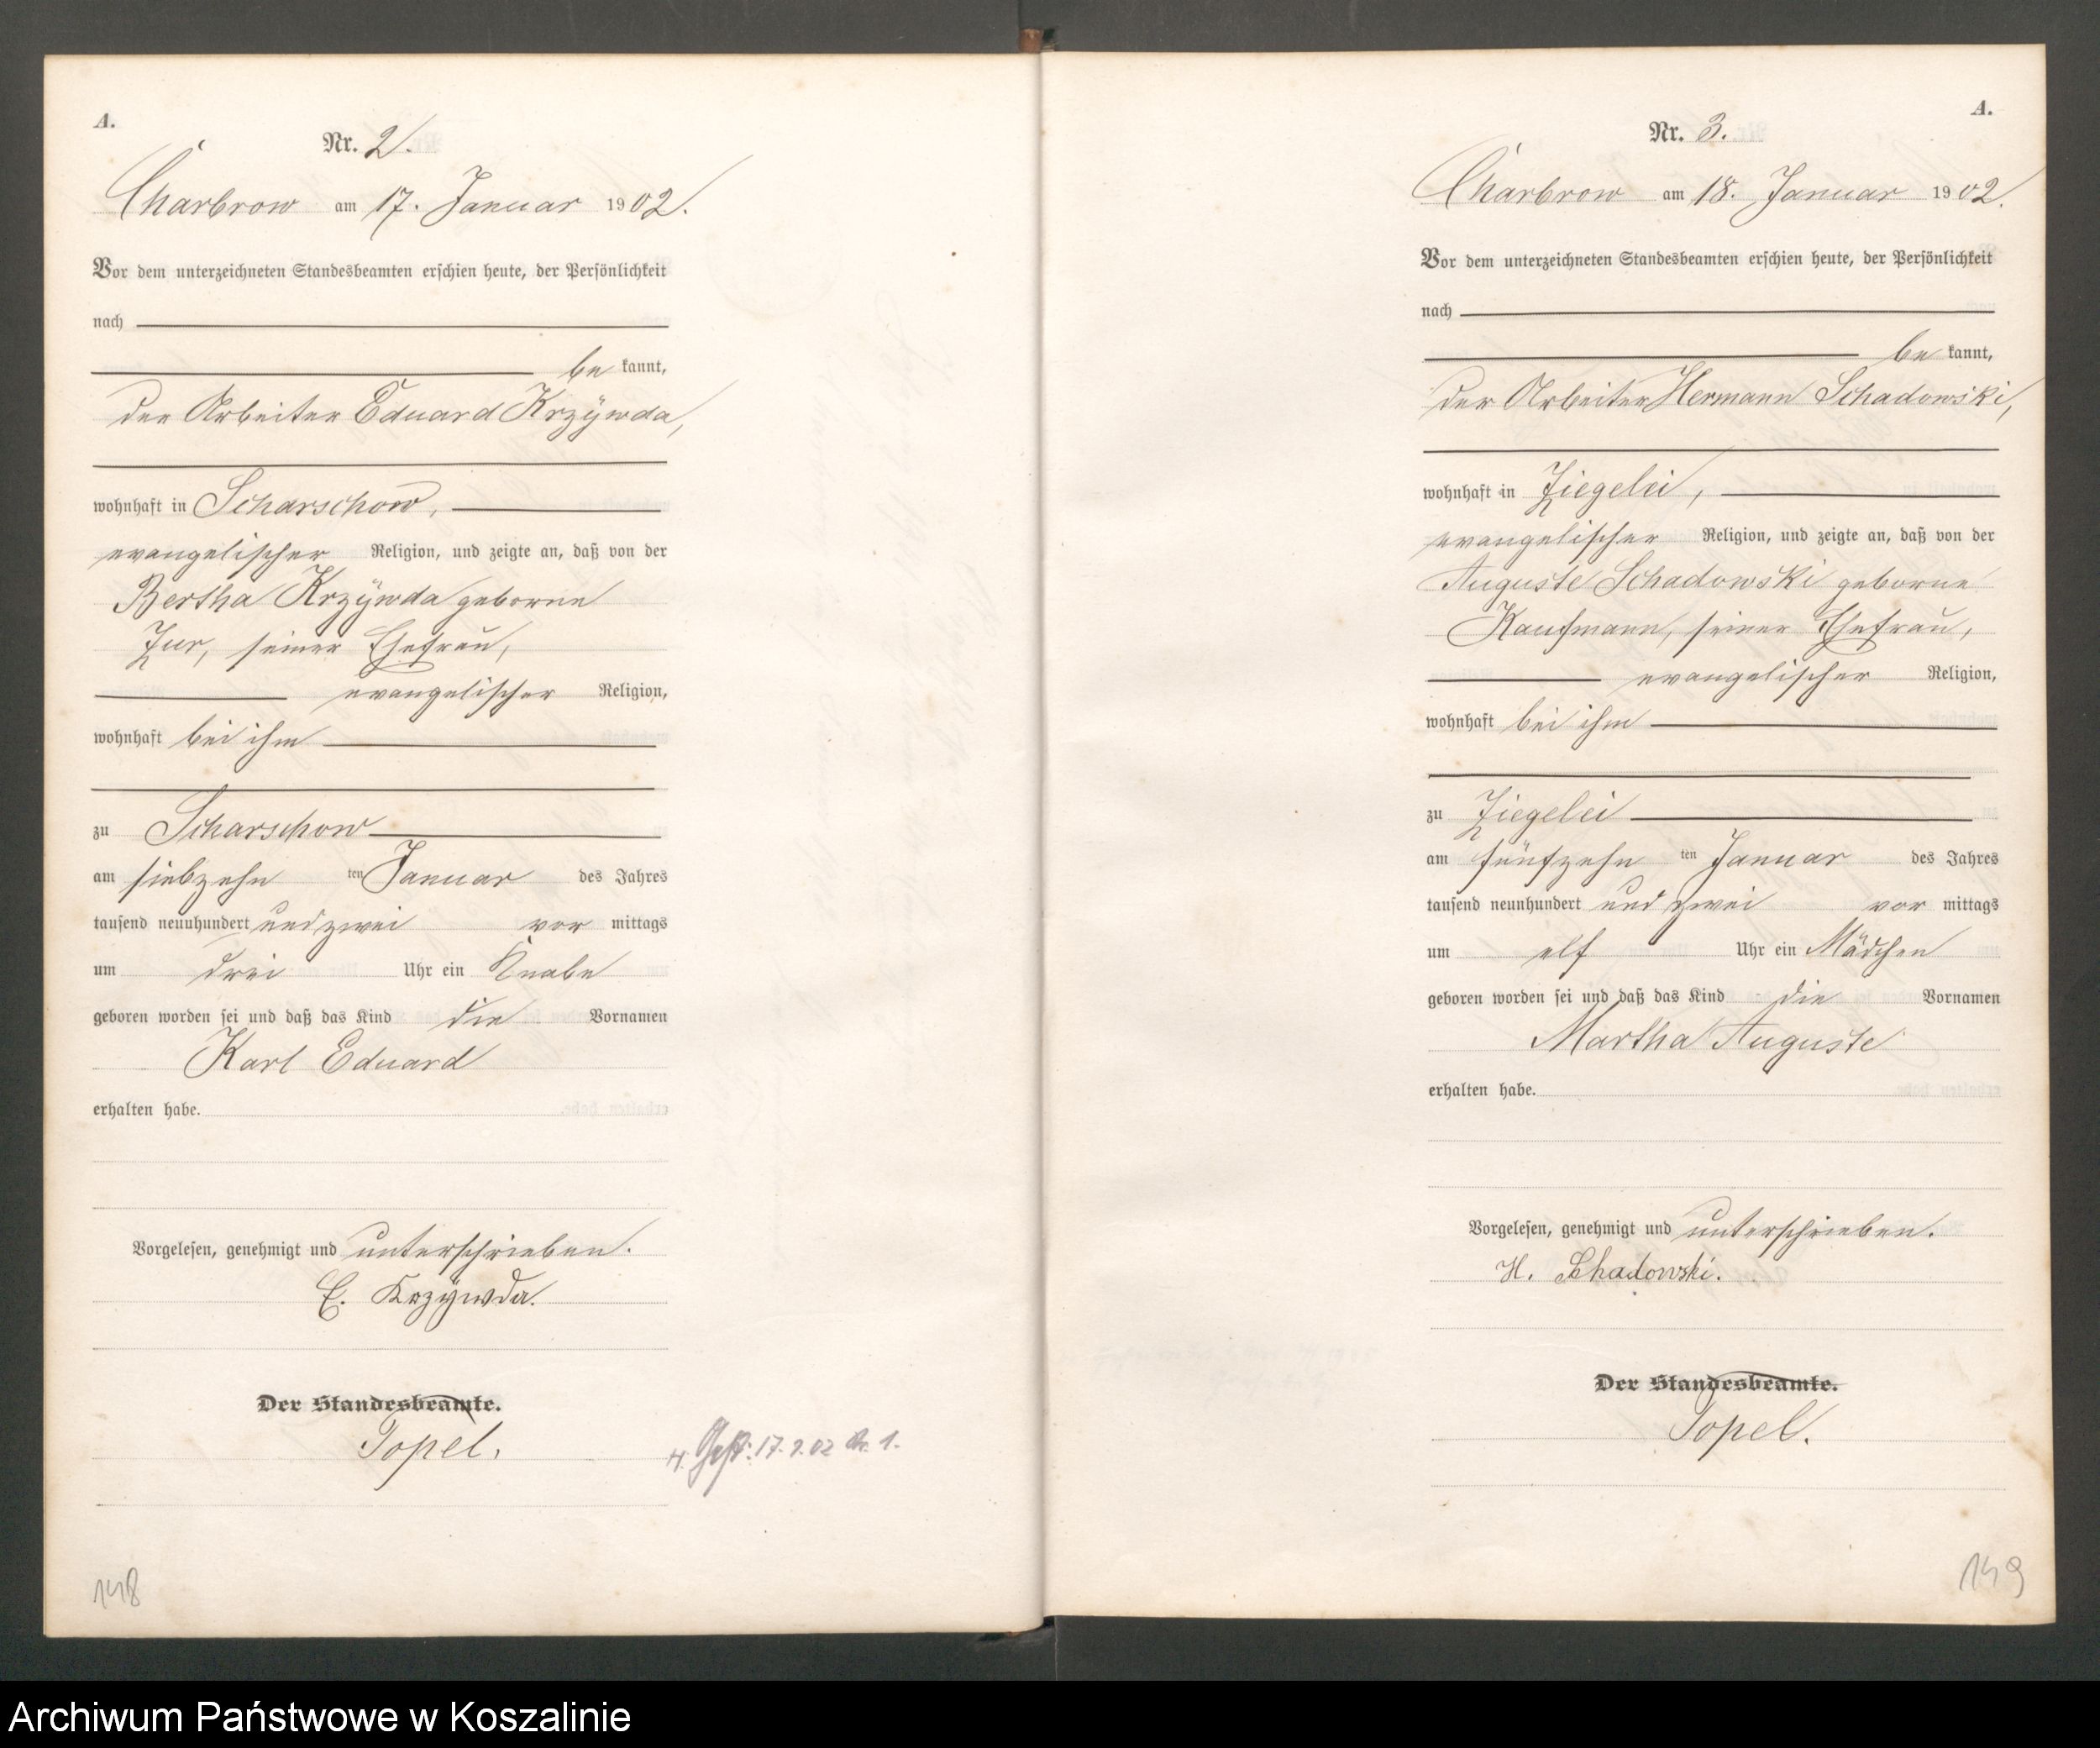 A.
Nr. 2.
Charbrow am 17. Januar 1902.
Vor dem unterzeichneten Standesbeamten erschien heute, der Persönlichkeit
nach
be kannt,
der Arbeiter Eduard Krzÿwda,
wohnhaft in Scharschow,
evangelischer Religion, und zeigte an, daß von der
Bertha Krzÿwda geborne
Zur, seiner Ehefrau,
evangelischer Religion,
wohnhaft bei ihm
zu Scharschow
am siebzehn ten Januar des Jahres
tausend neunhundert und zwei vor mittags
um drei Uhr ein Knabe
geboren worden sei und daß das Kind die Vornamen
Karl Eduard
erhalten habe.
Vorgelesen, genehmigt und unterschrieben.
E. Krzÿwda.
Der Standesbeamte.
Topel.
Gest. 17. 02 1.
148
A.
Nr. 3.
Charbrow am 18. Januar 1902.
Vor dem unterzeichneten Standesbeamten erschien heute, der Persönlichkeit
nach
be kannt,
der Arbeiter Hermann Schadowski,
wohnhaft in Ziegelei,
evangelischer Religion, und zeigte an, daß von der
Auguste Schadowski geborne
Kaufmann, seiner Ehefrau,
evangelischer Religion,
wohnhaft bei ihm
zu Ziegelei
am fünfzehn ten Januar des Jahres
tausend neunhundert und zwei vor mittags
um elf Uhr ein Mädchen
geboren worden sei und daß das Kind die Vornamen
Martha Auguste
erhalten habe.
Vorgelesen, genehmigt und unterschrieben.
H. Schadowski.
Der Standesbeamte.
Topel.
149
Archiwum Państwowe w Koszalinie